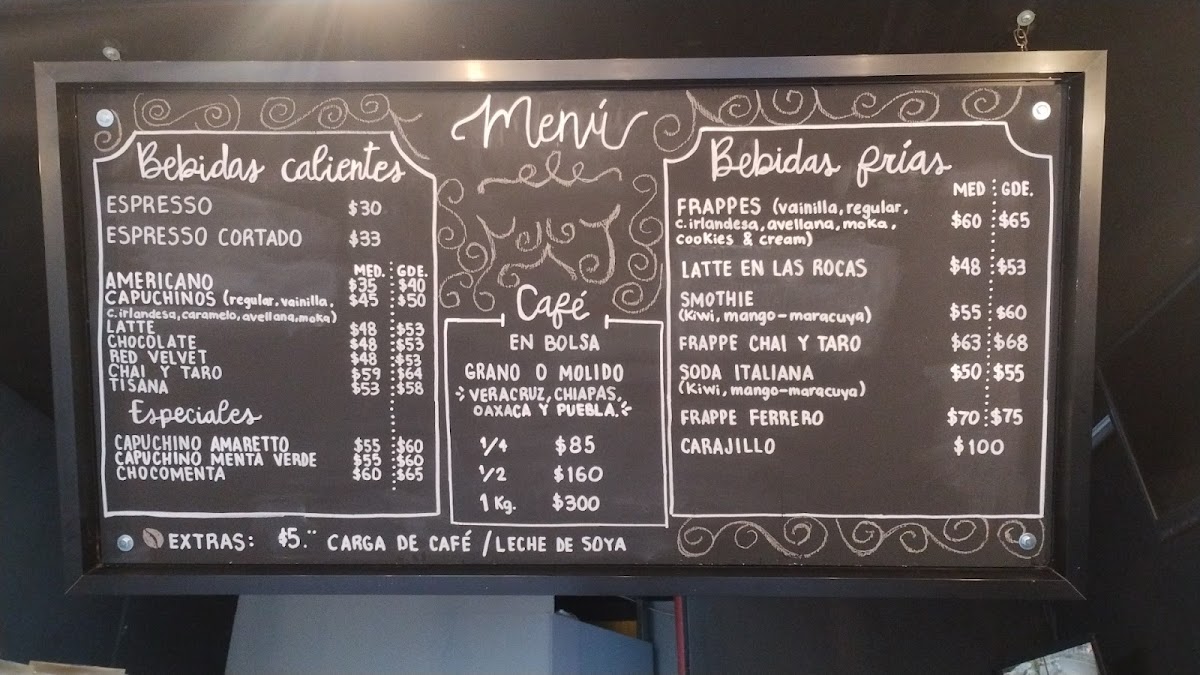 Menú
Bebidas calientes
ESPRESSO $30
ESPRESSO CORTADO $33
MED. GDE.
AMERICANO $35 $40
CAPUCHINOS (regular, vainilla, $45 $50
c.irlandesa, caramelo, avellana, moka)
LATTE $48 $53
CHOCOLATE $48 $53
RED VELVET $48 $53
CHAI Y TARO $59 $64
TISANA $53 $58
Especiales
CAPUCHINO AMARETTO $55 $60
CAPUCHINO MENTA VERDE $55 $60
CHOCOMENTA $60 $65
Café
EN BOLSA
GRANO O MOLIDO
VERACRUZ, CHIAPAS,
OAXACA Y PUEBLA.
1/4 $85
1/2 $160
1 Kg. $300
Bebidas frías
MED GDE.
FRAPPES (vainilla, regular, $60 $65
c.irlandesa, avellana, moka,
cookies & cream)
LATTE EN LAS ROCAS $48 $53
SMOTHIE
(Kiwi, mango-maracuya) $55 $60
FRAPPE CHAI Y TARO $63 $68
SODA ITALIANA $50 $55
(Kiwi, mango-maracuya)
FRAPPE FERRERO $70 $75
CARAJILLO $100
EXTRAS: $5.¨ CARGA DE CAFÉ / LECHE DE SOYA